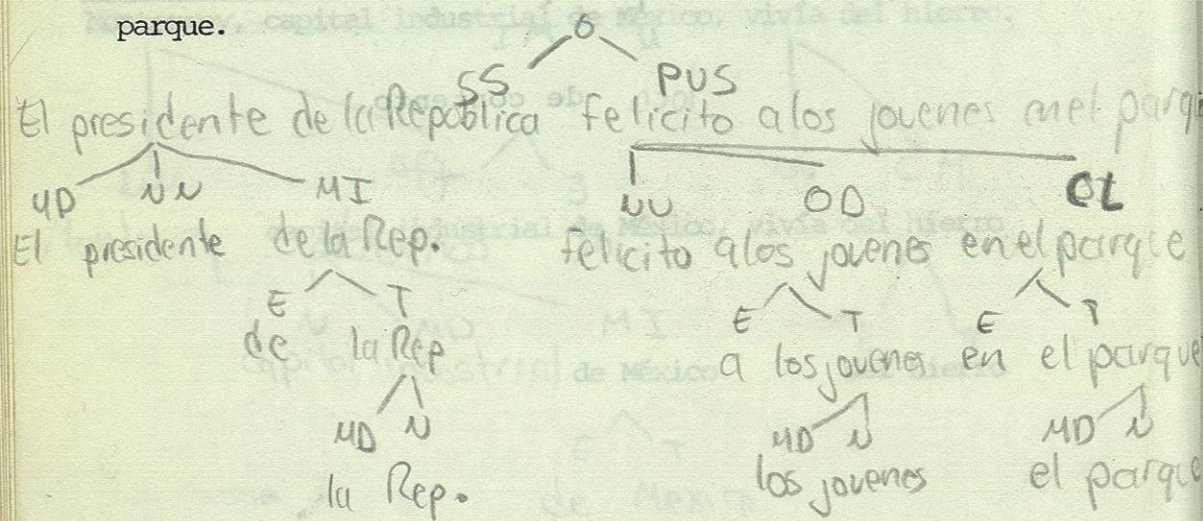 parque.
O
SS PVS
El presidente de la República felicito a los jovenes en el parq
MD NN MI NV OD Ct
El presidente de la Rep. felicito a los jovenes en el parque
E T E T E T
de la Rep a los jovenes en el parque
MD N MD N MD N
la Rep. los jovenes el parque